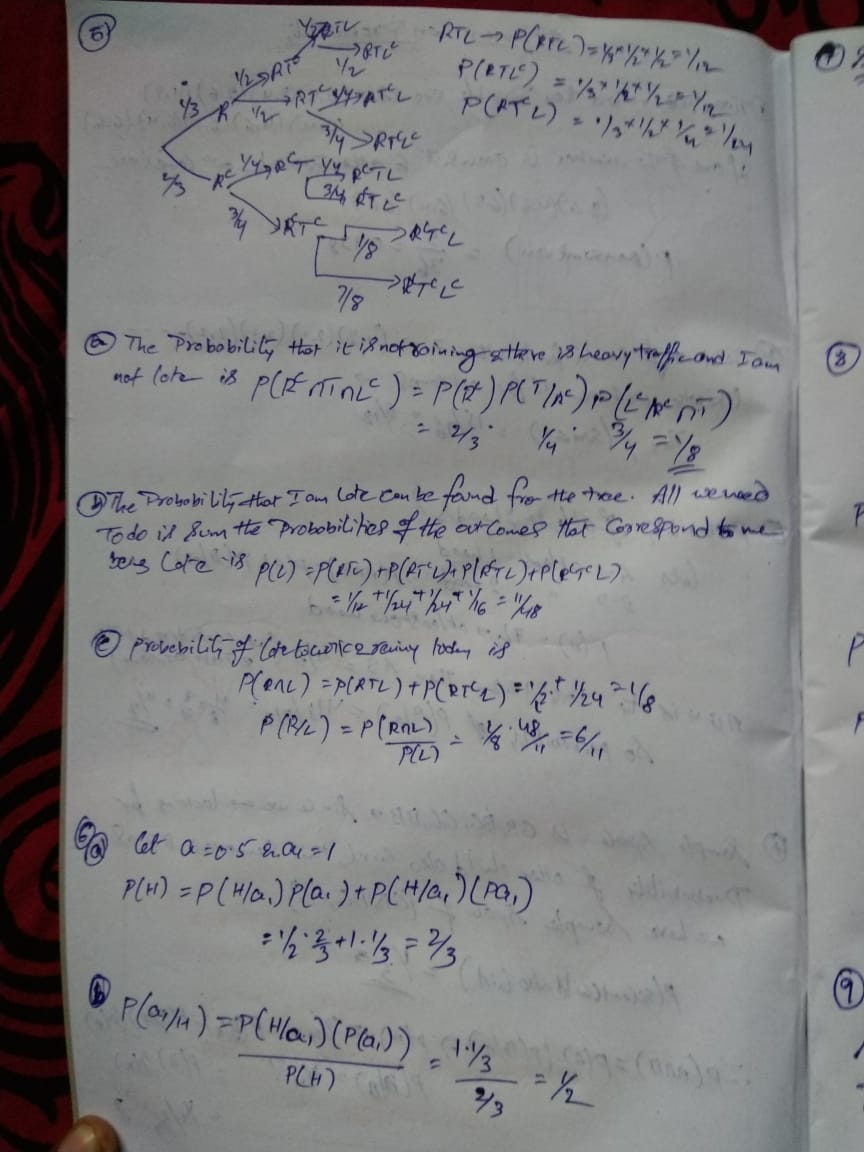 5
1/2 RTL
1/2 RTLᶜ
RTL → P(RTL) = 1/3 × 1/2 × 1/2 = 1/12
P(RTLᶜ) = 1/3 × 1/2 × 1/2 = 1/12
P(RTᶜL) = 1/3 × 1/2 × 1/4 = 1/24
1/3 R 1/2
1/2 RTᶜ 1/4 RTᶜL
3/4 RTᶜLᶜ
2/3 Rᶜ 1/4 RᶜT 1/4 RᶜTL
3/4 RᶜTLᶜ
3/4 RᶜTᶜ 1/8 RᶜTᶜL
7/8 RᶜTᶜLᶜ
a The Probability that it is not raining & there is heavy traffic and I am
not late is P(Rᶜ∩T∩Lᶜ) = P(Rᶜ) P(T/Rᶜ) P(Lᶜ/Rᶜ∩T)
= 2/3 · 1/4 · 3/4 = 1/8
b The Probability that I am late can be found from the tree. All we need
To do is Sum the Probabilities of the outcomes that Correspond to me
being late is P(L) = P(RTL) + P(RTᶜL) + P(RᶜTL) + P(RᶜTᶜL)
= 1/12 + 1/24 + 1/24 + 1/16 = 11/48
c probability of late to work & rainy today is
P(R∩L) = P(RTL) + P(RTᶜL) = 1/12 + 1/24 = 1/8
P(R/L) = P(R∩L)/P(L) = 1/8 · 48/11 = 6/11
6
a let a = 0.5 & a₁ = 1
P(H) = P(H/a₁) P(a₁) + P(H/a₁)(Pa₁)
= 1/2 · 2/3 + 1 · 1/3 = 2/3
b P(a₁/H) = P(H/a₁)(P(a₁))/P(H) = 1·1/3 / 2/3 = 1/2
8
9